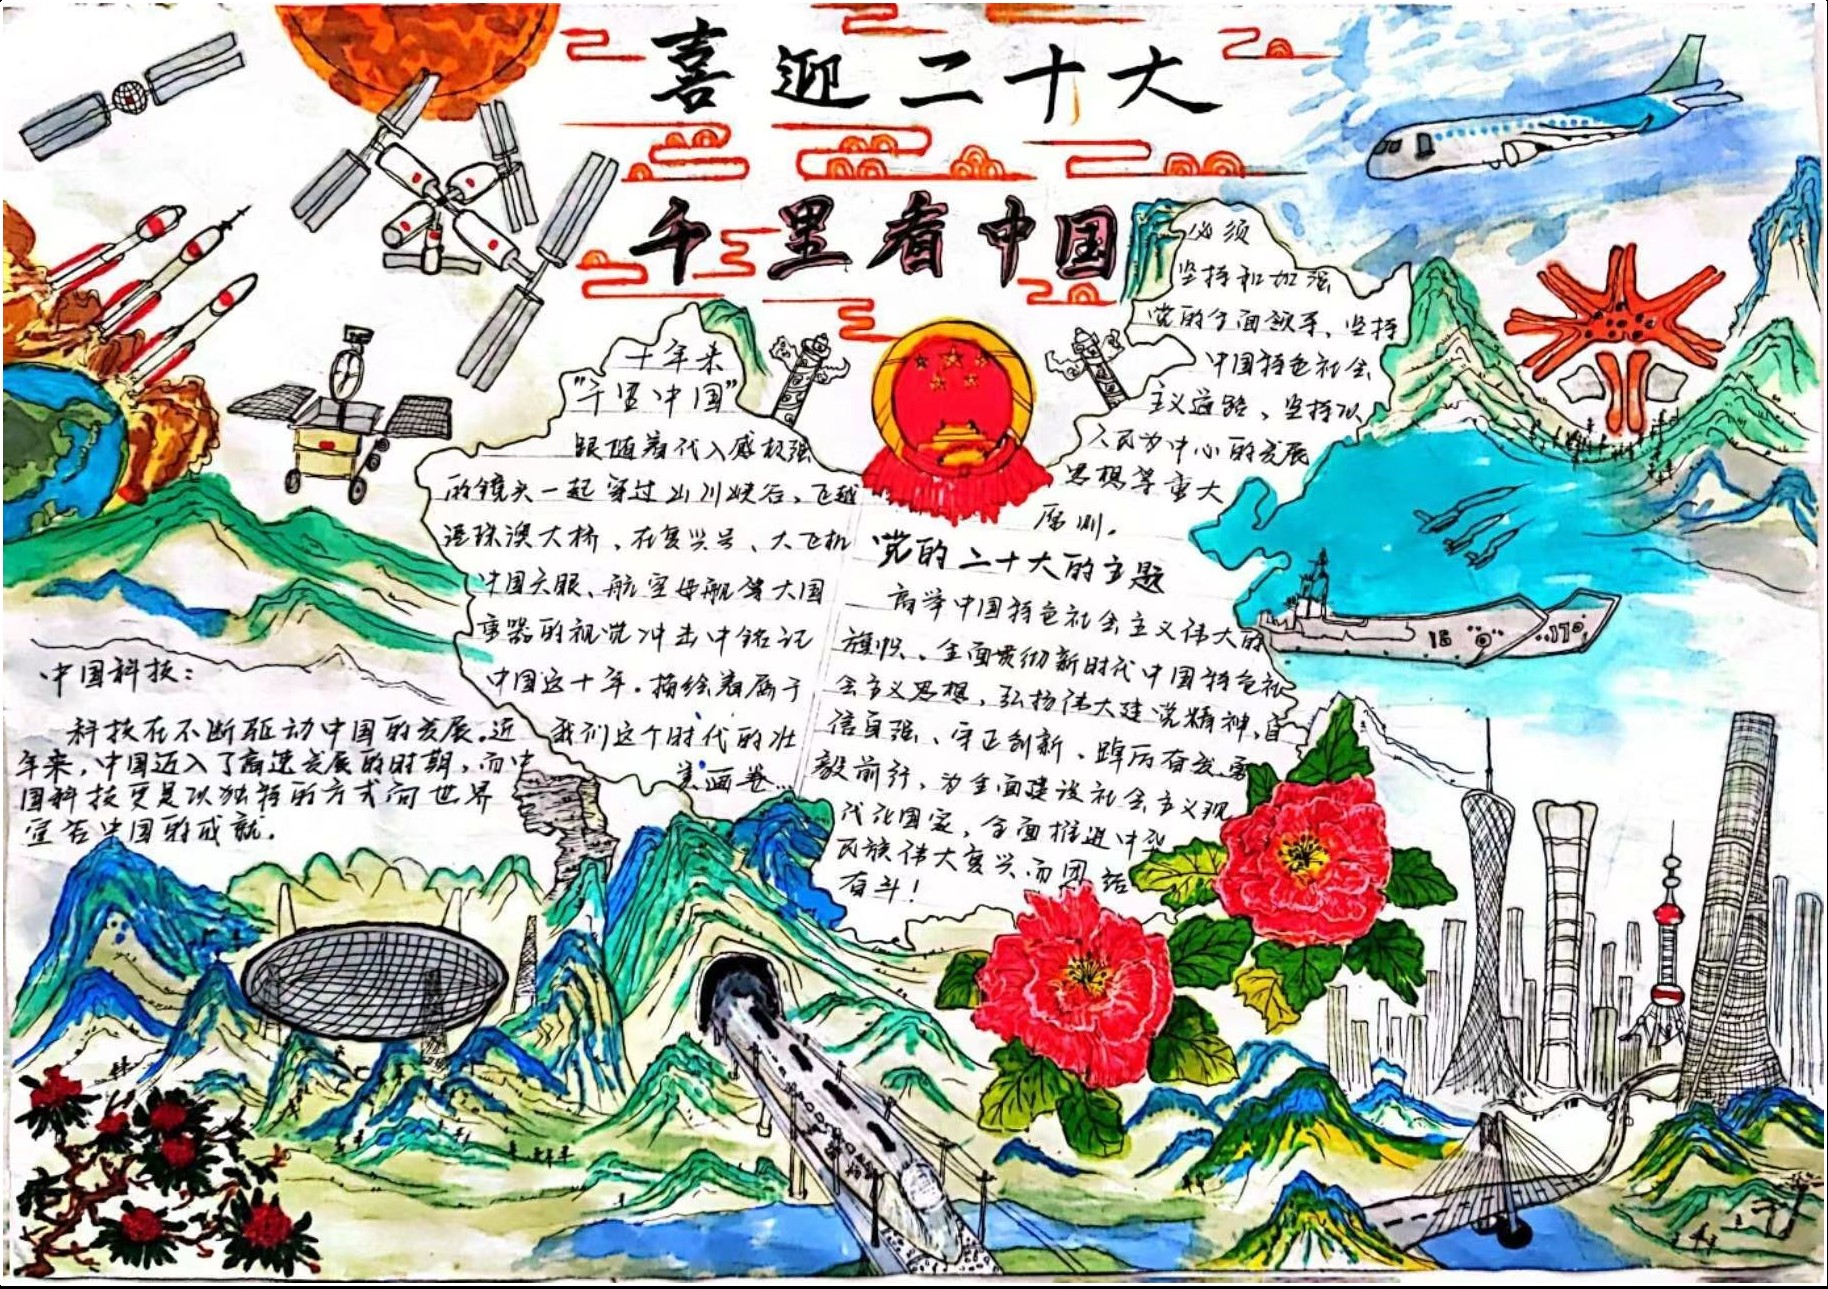 喜迎二十大
千里看中国
十年来
"千里中国"
跟随着代入感极强
的镜头一起穿过山川峡谷、飞越
港珠澳大桥、在复兴号、大飞机
中国天眼、航空母舰等大国
重器的视觉冲击中铭记
中国这十年。描绘着属于
我们这个时代的壮
美画卷...
必须
坚持和加强
党的全面领导、坚持
中国特色社会
主义道路、坚持以
人民为中心的发展
思想等重大
原则。
党的二十大的主题
高举中国特色社会主义伟大的
旗帜、全面贯彻新时代中国特色社
会主义思想，弘扬伟大建党精神，自
信自强、守正创新、踔厉奋发、勇
毅前行，为全面建设社会主义现
代化国家，全面推进中华
民族伟大复兴而团结
奋斗！
中国科技：
科技在不断驱动中国的发展。近
年来，中国迈入了高速发展的时期，而中
国科技更是以独特的方式向世界
宣告中国的成就。
16
17